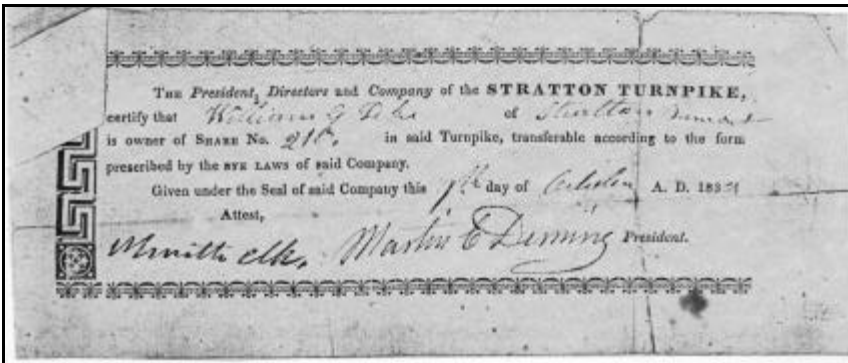 THE President, Directors and Company of the STRATTON TURNPIKE,
certify that William G of Stratton
is owner of SHARE No. in said Turnpike, transferable according to the form
prescribed by the BYE LAWS of said Company.
Given under the Seal of said Company this day of A. D. 183
Attest,
Martin C Deming President.